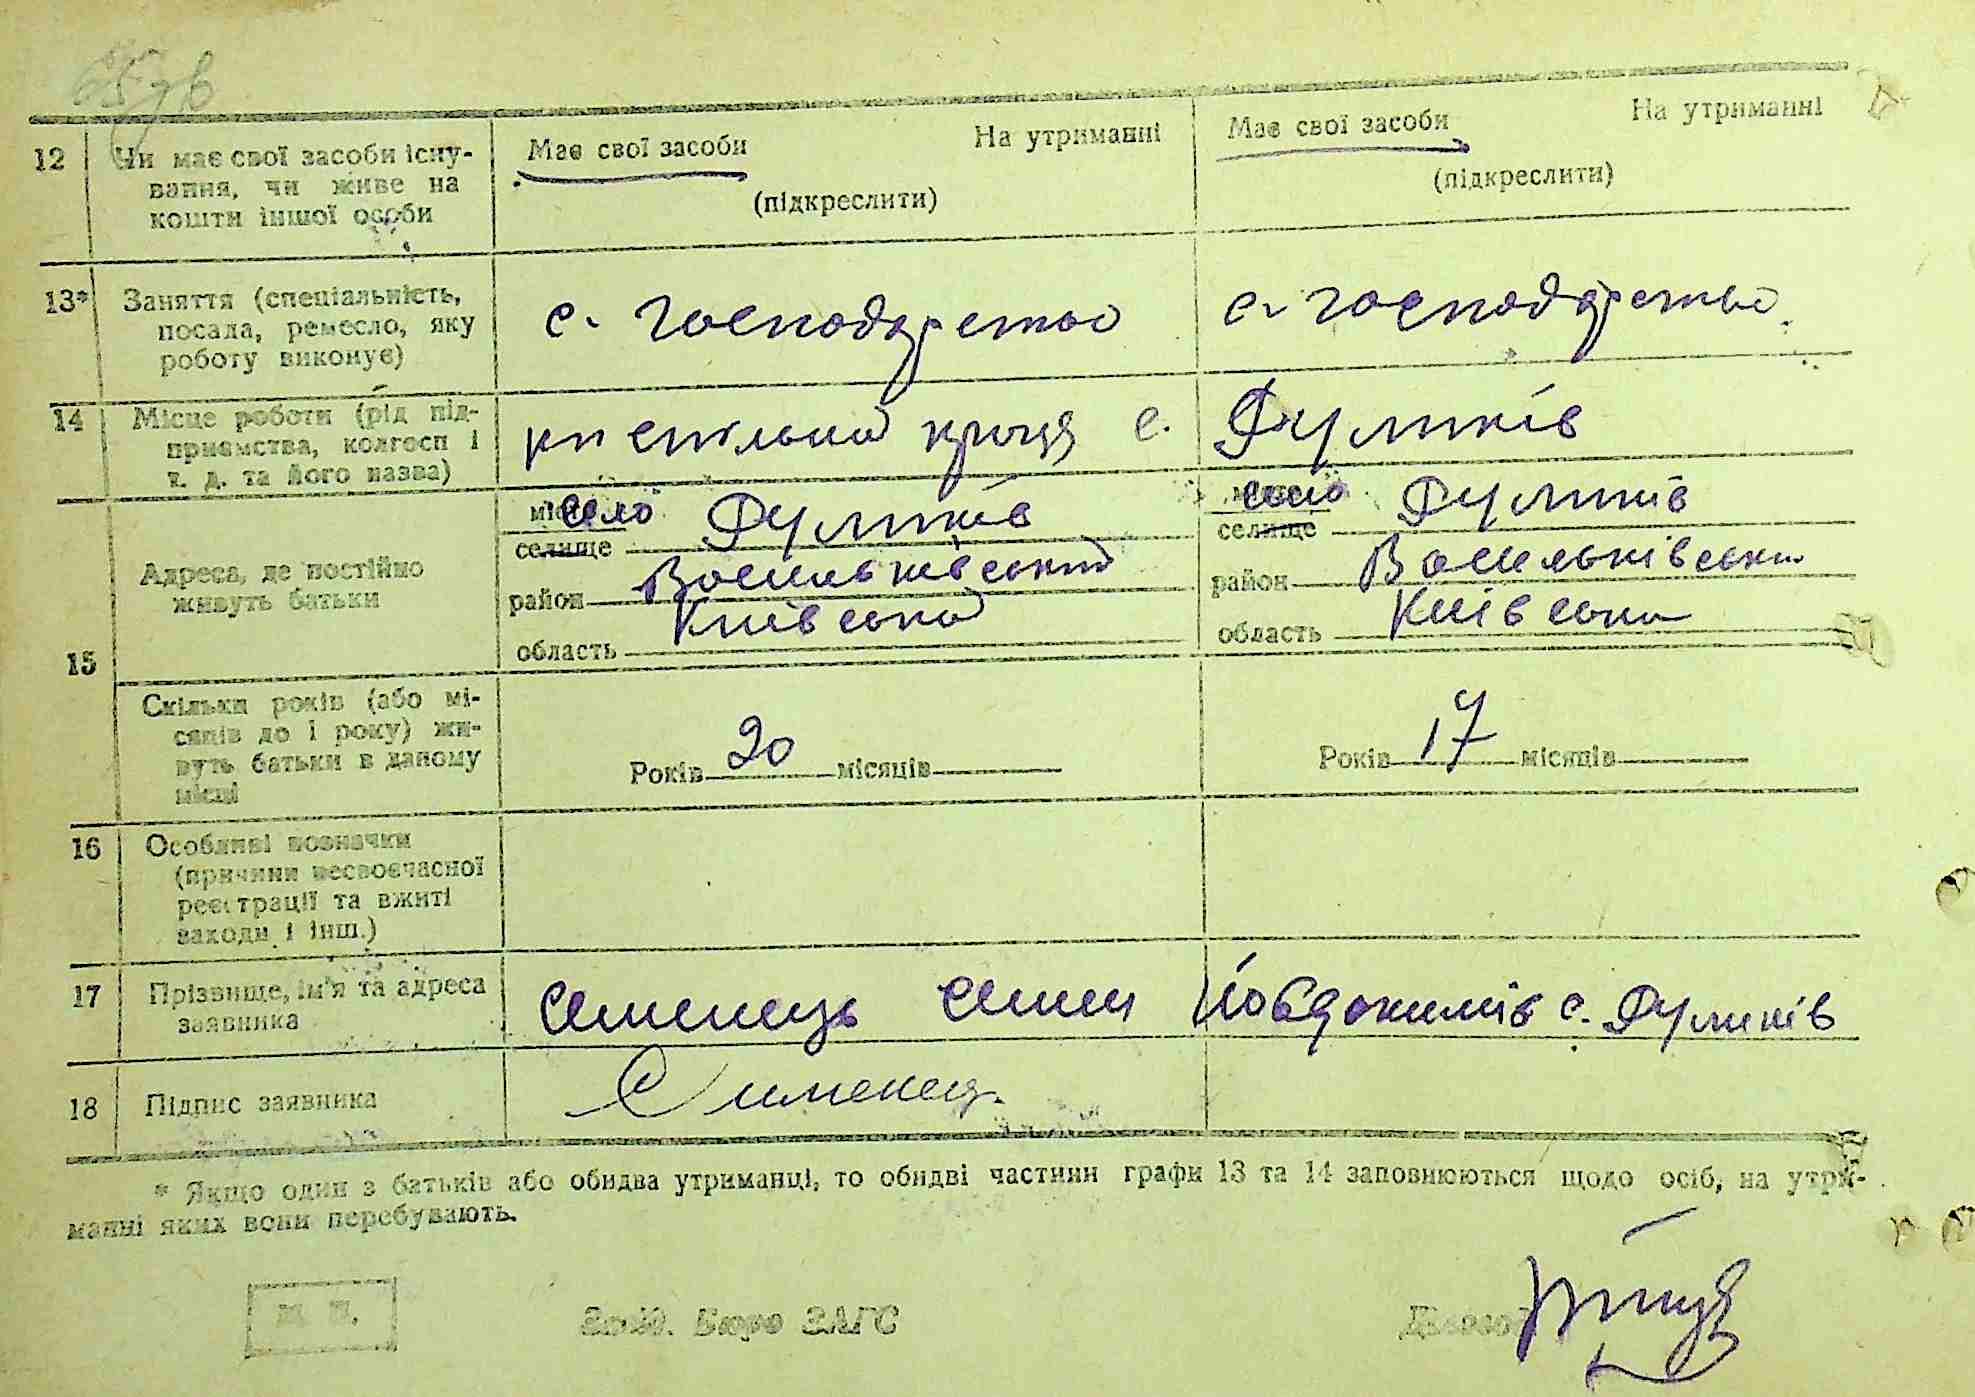 12 Чи має свої засоби існу-
вання, чи живе на
кошти іншої особи
Має свої засоби На утриманні
(підкреслити)
Має свої засоби На утриманні
(підкреслити)
13* Заняття (спеціальність,
посада, ремесло, яку
роботу виконує)
с. господарство
с. господарство
14 Місце роботи (рід під-
приємства, колгосп і
т. д. та його назва)
с. Дуликів
15 Адреса, де постійно
живуть батьки
село Дуликів
селище
район Васильківський
область Київська
село Дуликів
селище
район Васильківський
область Київська
Скільки років (або мі-
сяців до 1 року) жи-
вуть батьки в даному
місці
Років 20 місяців
Років 17 місяців
16 Особливі позначки
(причини несвоєчасної
реєстрації та вжиті
заходи і інш.)
17 Прізвище, ім'я та адреса
заявника
Семенець Семен Йовдокимів с. Дуликів
18 Підпис заявника
Семенець
* Якщо один з батьків або обидва утриманці, то обидві частини графи 13 та 14 заповнюються щодо осіб, на утри-
манні яких вони перебувають.
М. П.
Зав. Бюро ЗАГС